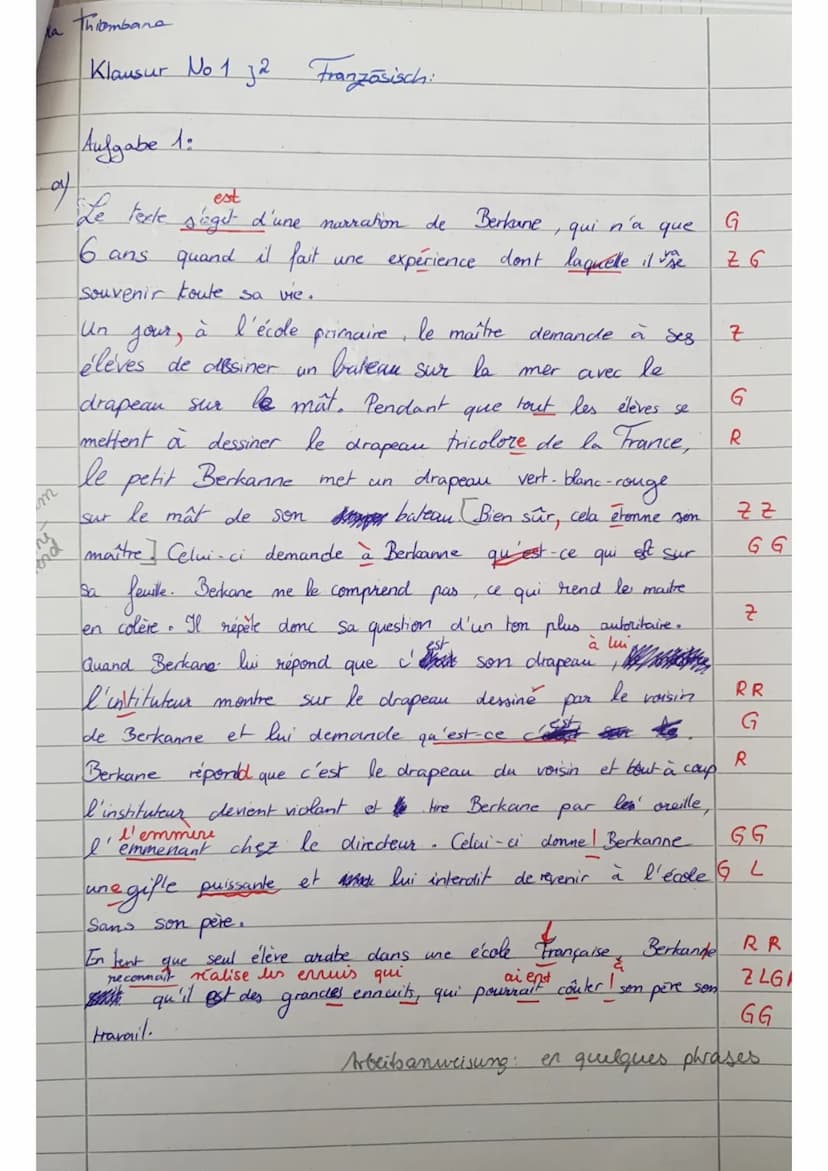 Thiombana
Klausur No 1 J2 Französisch:
Aufgabe 1:
a)
est
Le texte s'áget d'une narration de Berkane, qui n'a que G
6 ans quand il fait une expérience dont laquelle il va se Z G
souvenir toute sa vie.
Un jour, à l'école primaire, le maître demande à ses Z
élèves de dessiner un bateau sur la mer avec le
drapeau sur le mât. Pendant que tout les élèves se G
mettent à dessiner le drapeau tricolore de la France, R
le petit Berkanne met un drapeau vert-blanc-rouge
sur le mât de son bateau. [Bien sûr, cela étonne son Z Z
maître] Celui-ci demande à Berkanne qu'est-ce qui est sur G G
sa feuille. Berkane ne le comprend pas, ce qui rend le maitre
en colère. Il répète donc sa question d'un ton plus autoritaire. Z
est à lui
Quand Berkane lui répond que c' son drapeau,
l'instituteur montre sur le drapeau dessiné par le voisin R R
de Berkanne et lui demande qu'est-ce c'est G
Berkane répond que c'est le drapeau du voisin et tout à coup R
l'instituteur devient violant et tire Berkane par les oreille,
l'emmène
l'emmenant chez le directeur. Celui-ci donne ! Berkanne G G
une gifle puissante et lui interdit de revenir à l'école G L
sans son père.
En tent que seul élève arabe dans une école Française, Berkande R R
reconnaît réalise les ennuis qui aient à
qu'il est des grandes ennuits, qui pourrait coûter ! son père son Z L G
travail. G G
Arbeitsanweisung: en quelques phrases